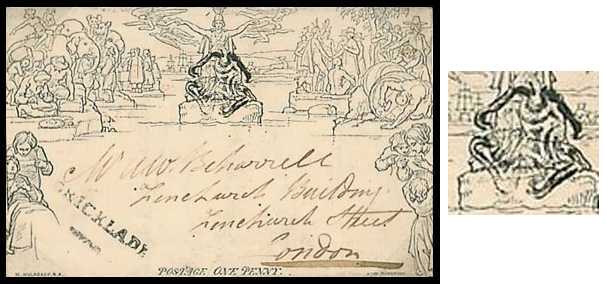 Fenchurch Building
Fenchurch Street
London
CRICKLADE
POSTAGE ONE PENNY.
W. MULREADY. R.A.